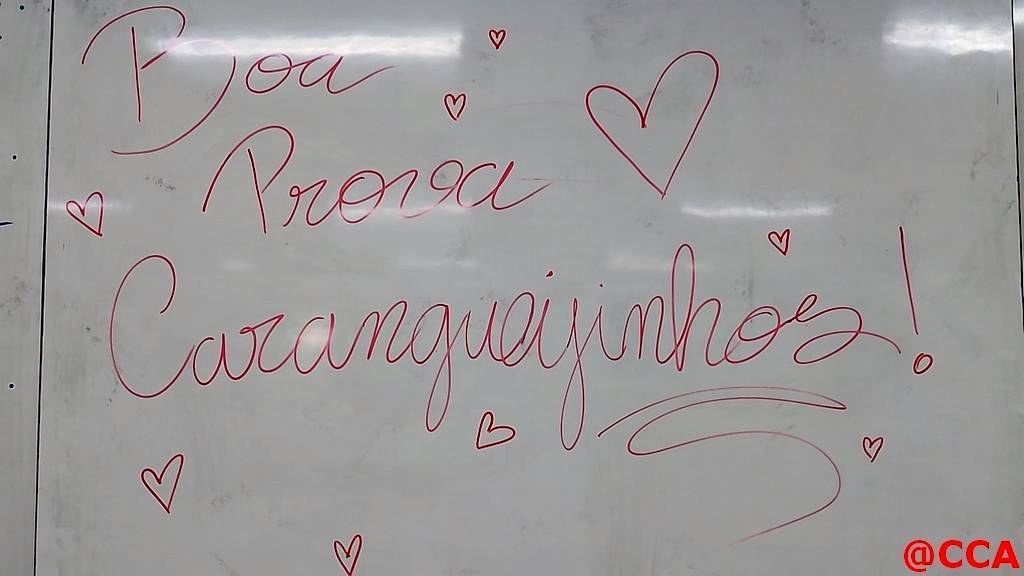 Boa
Prova
Carangueijinhos!
@CCA